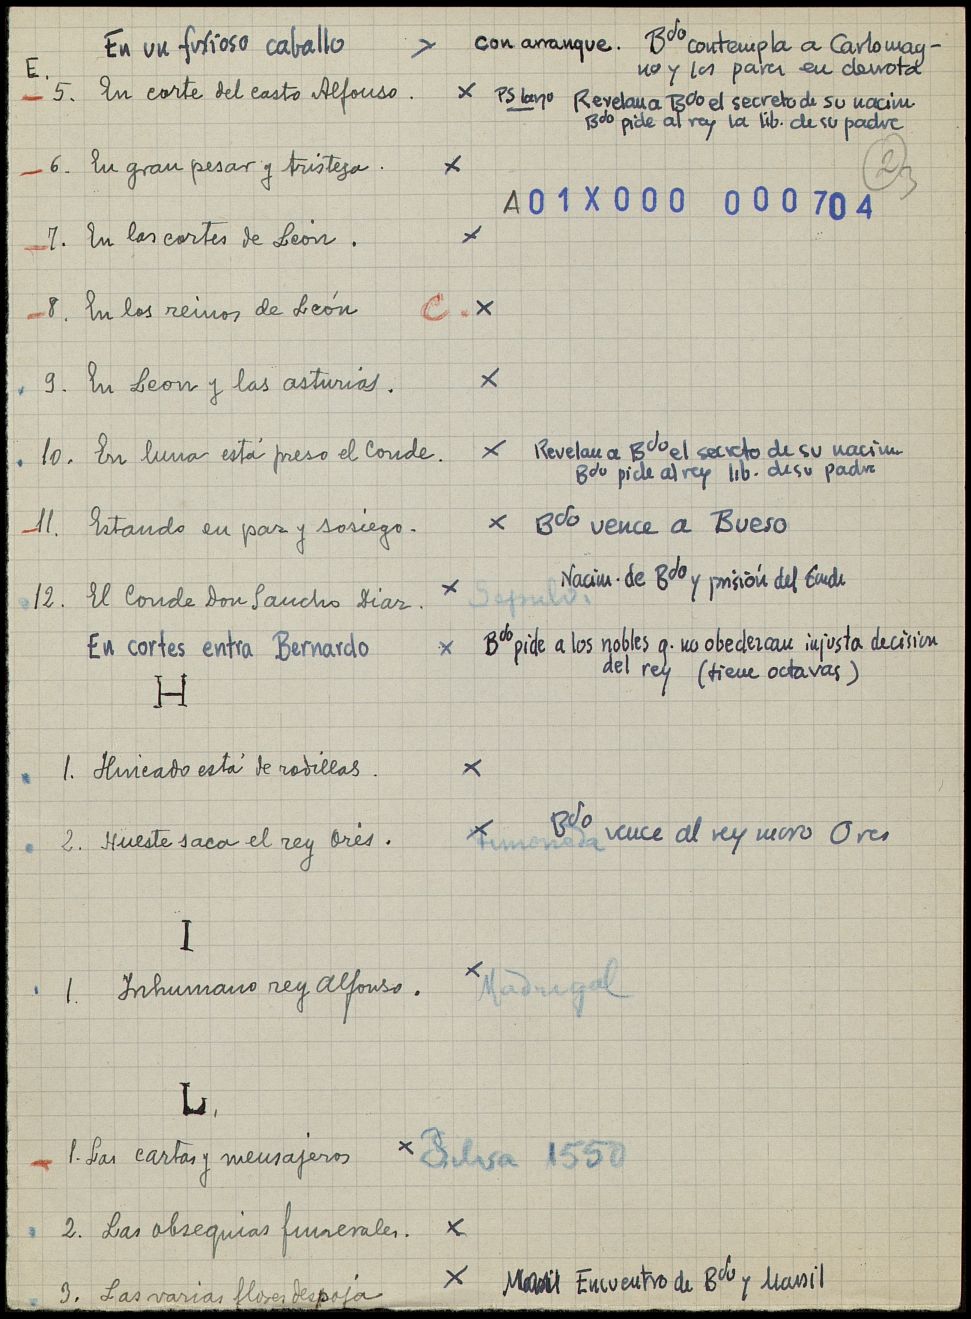 En un furioso caballo > con arranque. Bdo contempla a Carlomag-
no y los pares en derrota
E.
5. En corte del casto Alfonso. × PS largo Revelan a Bdo el secreto de su nacim.
Bdo pide al rey la lib. de su padre
6. En gran pesar y tristeza. ×
23
A01X000 000704
7. En las cortes de León. ×
8. En los reinos de León C. ×
9. En Leon y las asturias. ×
10. En luna está preso el Conde. × Revelan a Bdo el secreto de su nacim.
Bdo pide al rey lib. de su padre
11. Estando en paz y sosiego. × Bdo vence a Bueso
Nacim. de Bdo y prisión del Conde
12. El Conde Don Sancho Diaz. × Sepulv.
En cortes entra Bernardo × Bdo pide a los nobles q. no obedezcan injusta decision
del rey (tiene octavas)
H
1. Hincado está de rodillas. ×
2. Hueste saca el rey Orés. × Timoneda Bdo vence al rey moro Ores
I
1. Inhumano rey Alfonso. × Madrigal
L.
1. Las cartas y mensajeros × Silva 1550
2. Las obsequias funerales. ×
3. Las varias flores despoja × Encuentro de Bdo y Marsil